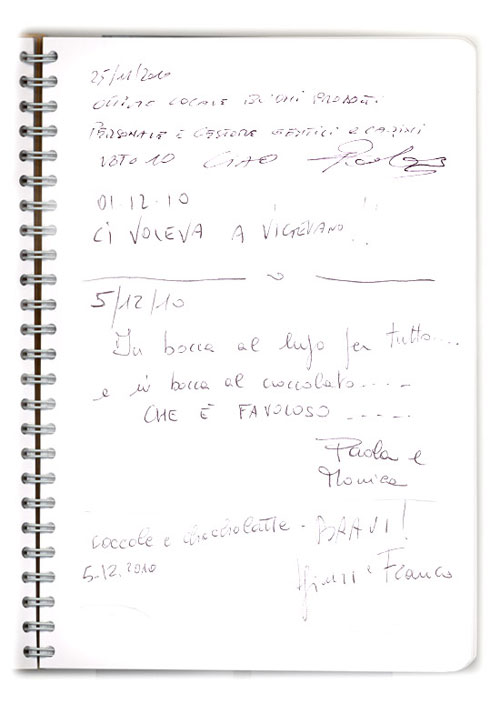 25/11/2010
OTTIMO LOCALE BUONI PRODOTTI
PERSONALE E GESTORE GENTILI E CARINI
VOTO 10 CIAO
01.12.10
CI VOLEVA A VIGEVANO !!
5/12/10
In bocca al lupo per tutto....
e in bocca al cioccolato.....
CHE È FAVOLOSO .....
Paola e
Monica
coccole e cioccolatte - BRAVI!
5.12.2010
e Franco